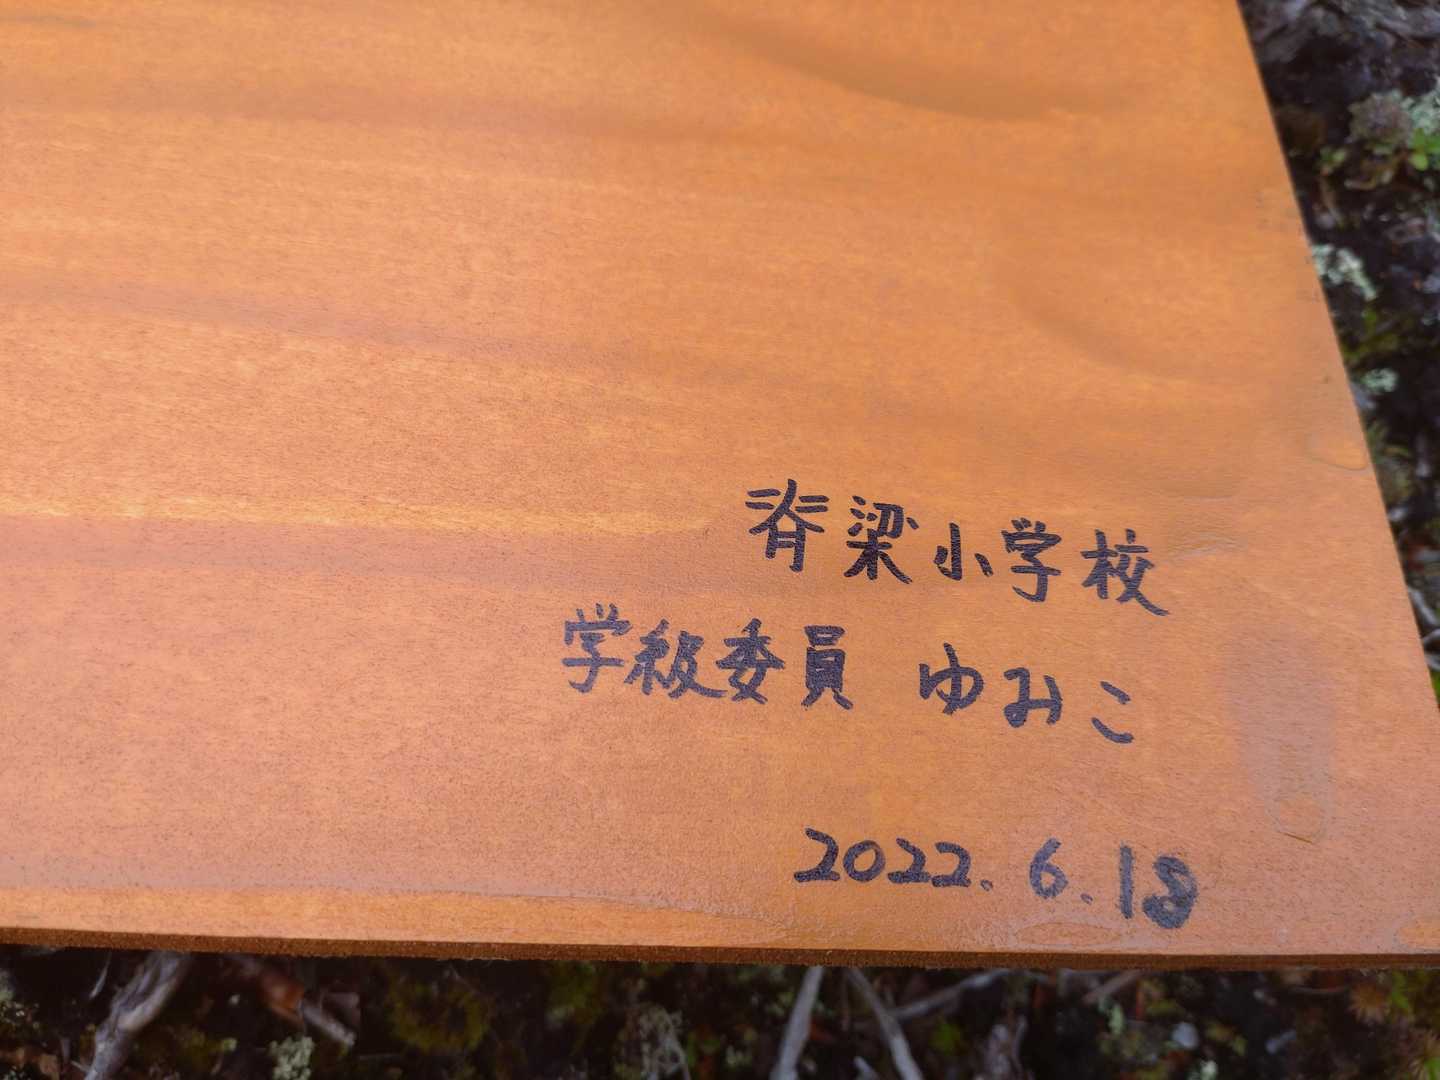 脊梁小学校
学級委員 ゆみこ
2022.6.18